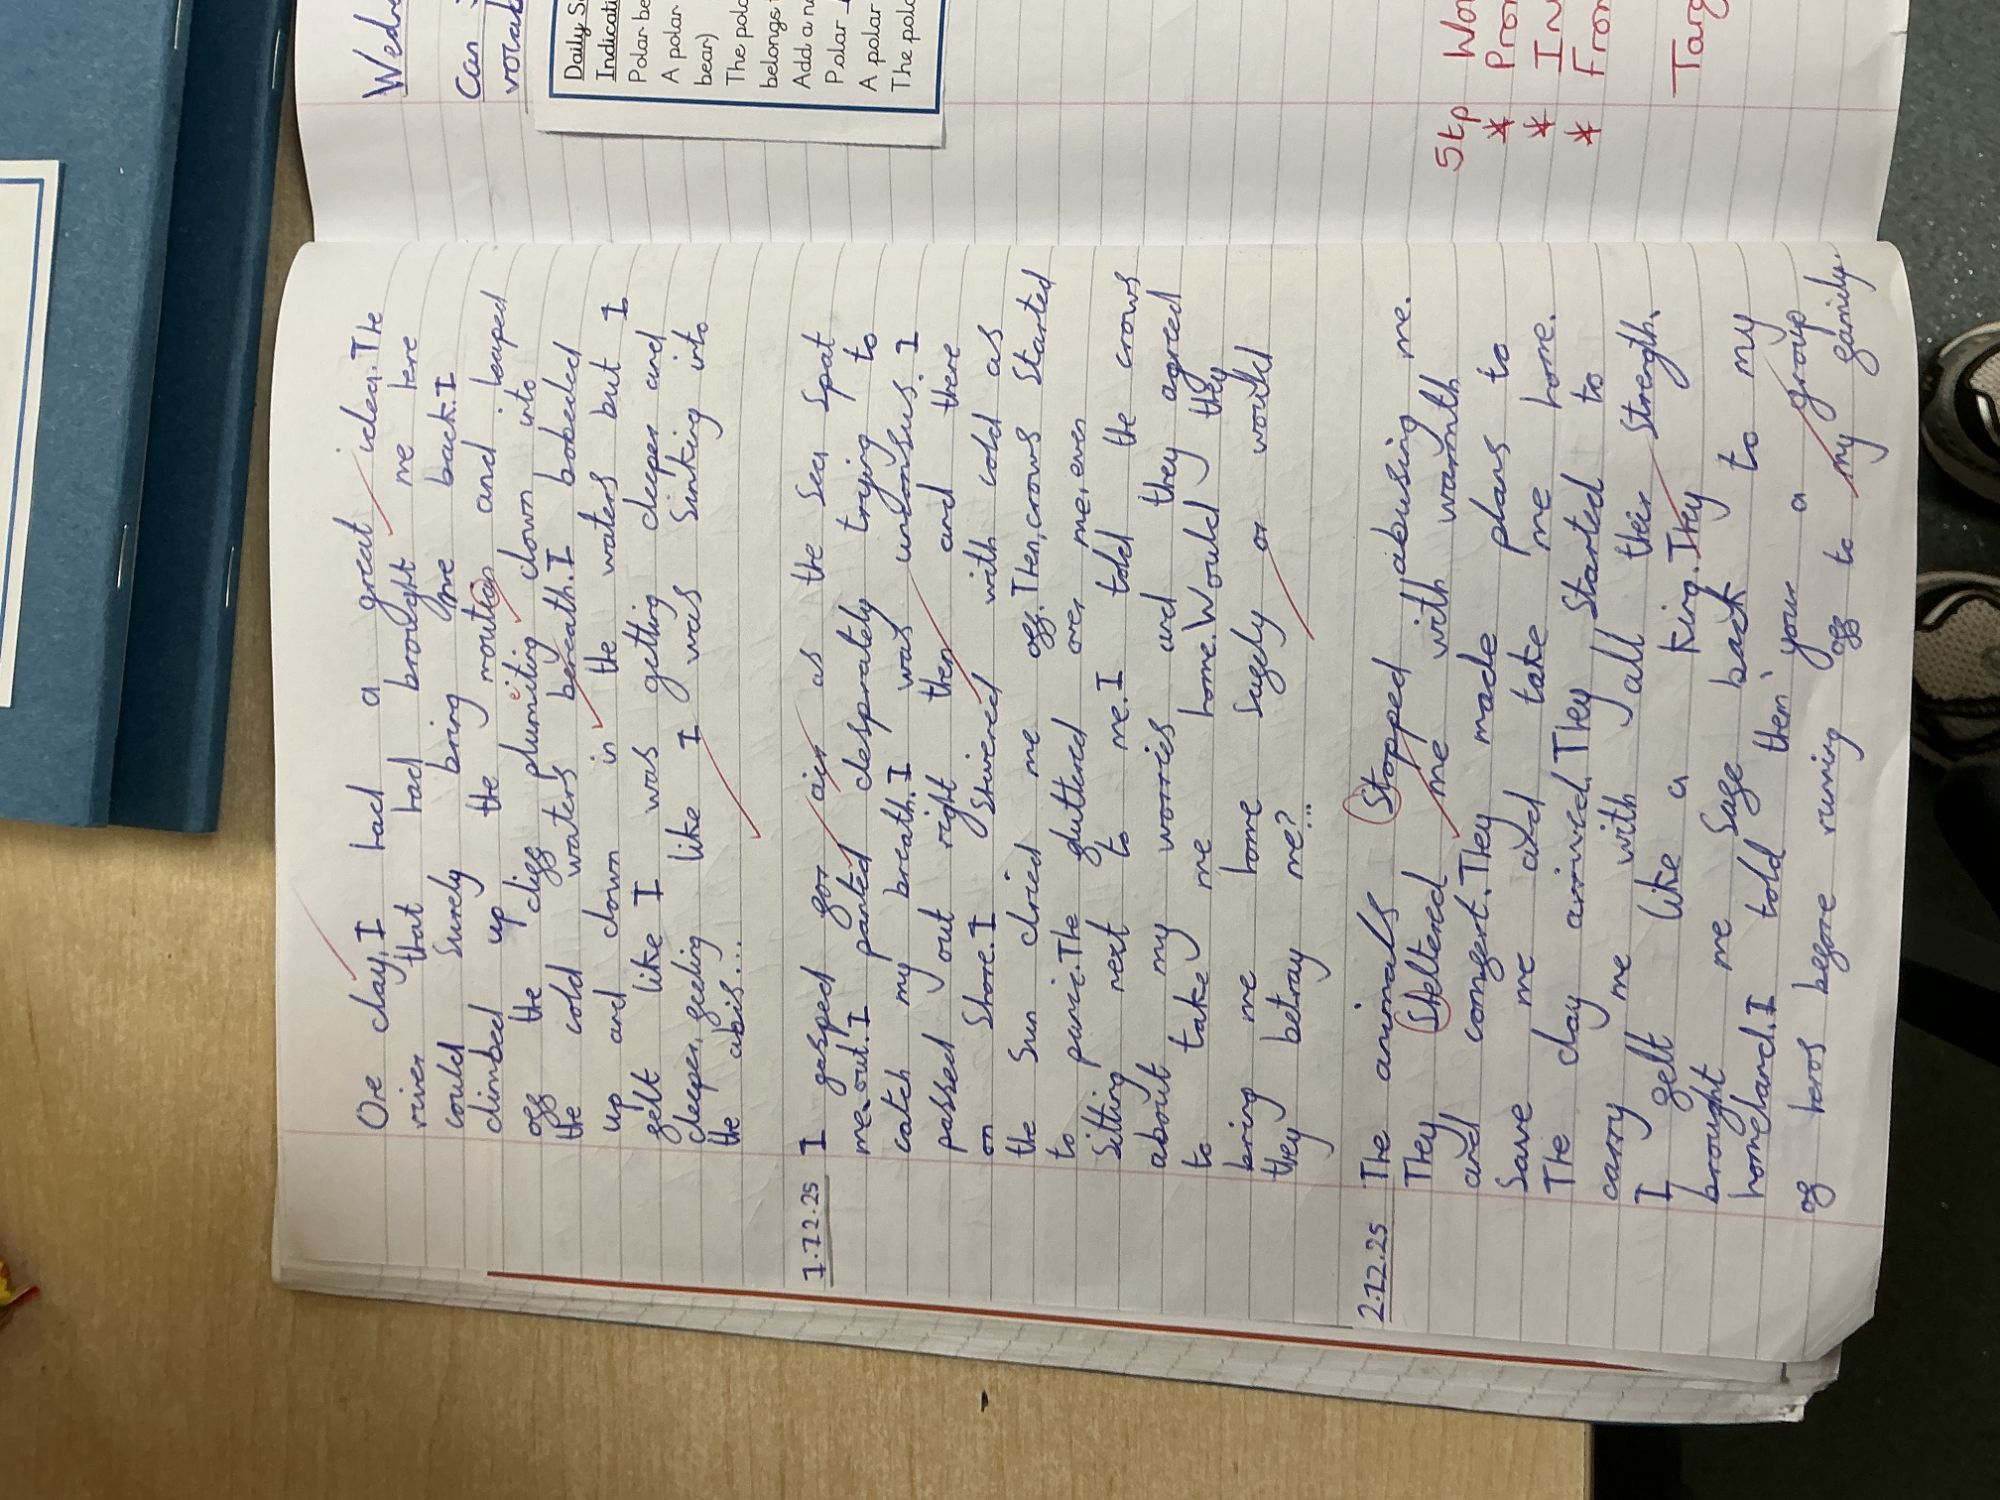 One day, I had a great idea. The
river that had brought me here
could surely bring me back. I
climbed up the moutian and leaped
off the cliff plumiting down into
the cold waters beneath. I bobeded
up and down in the waters but I
felt like I was getting deeper and
deeper, feeling like I was sinking into
the abis...
1.12.25 I gasped for air as the sea spat
me out. I panted desprately trying to
catch my breath. I was unconsus. I
passed out right then and there
on shore. I shivered with cold as
the sun dried me off. Then, crows started
to panic. The fluttered over me, even
sitting next to me. I told the crows
about my worries and they agreed
to take me home. Would they
bring me home safely or would
they betray me?...
2.12.25 The animals stopped abusing me.
They sheltered me with warmth
and comfert. They made plans to
save me and take me home.
The day arrived. They started to
carry me with all their strength.
I felt like a king. They
brought me safe back to my
homeland. I told them your a group
of heros before runing off to my family.
Wedn
Can
vocab
Daily S
Indicati
Polar be
A polar
bear)
The pola
belongs
Add a n
Polar
A polar
The pola
Stp Wo
* Pro
* In
* From
Targ